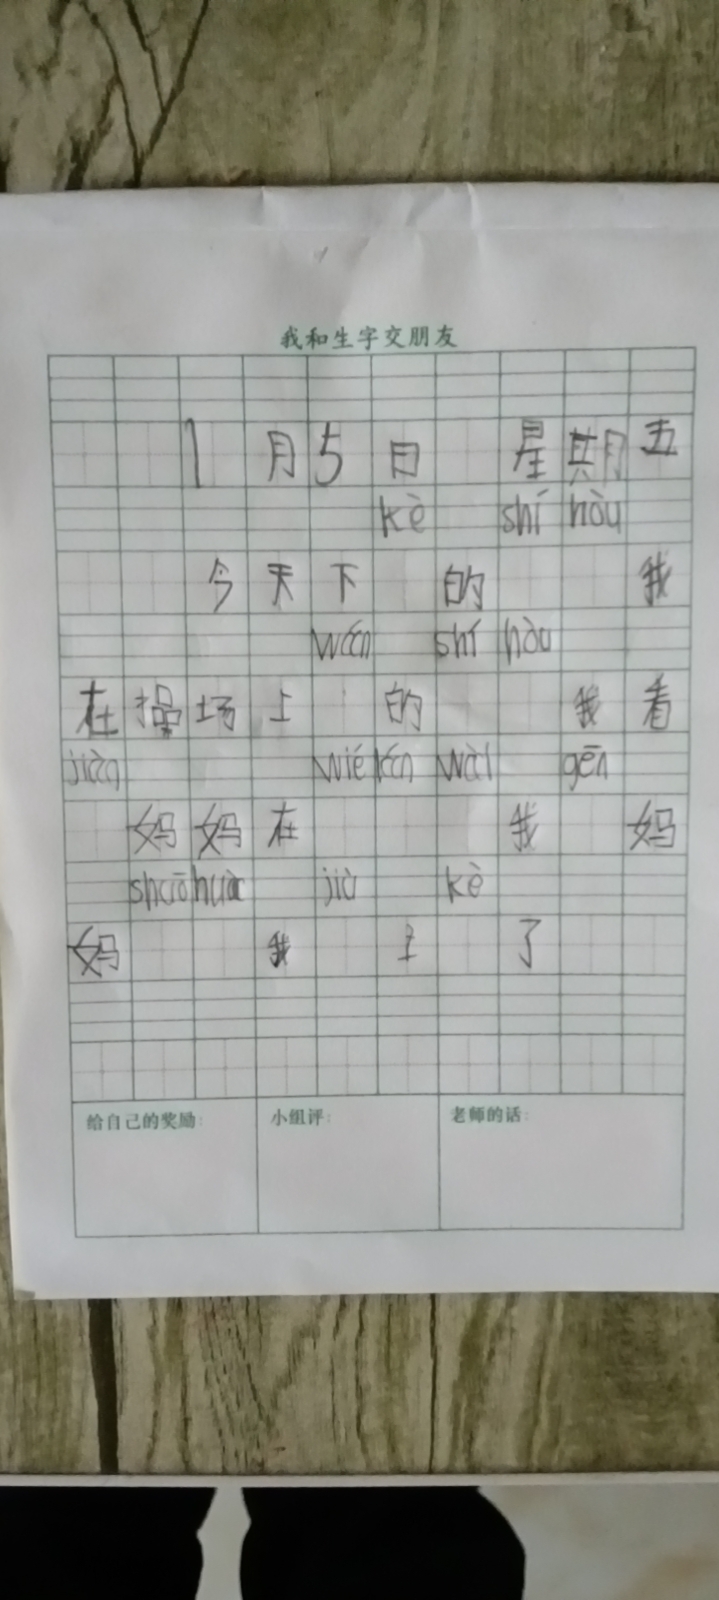 我和生字交朋友
1月5日 星期五
kè shí hòu
今天下 的 我
wán shí hòu
在操场上 的 我看
jiàn wié lán wài gēn
妈妈在 我 妈
shuō huà jiù kè
妈 我 上 了
给自己的奖励: 小组评: 老师的话: